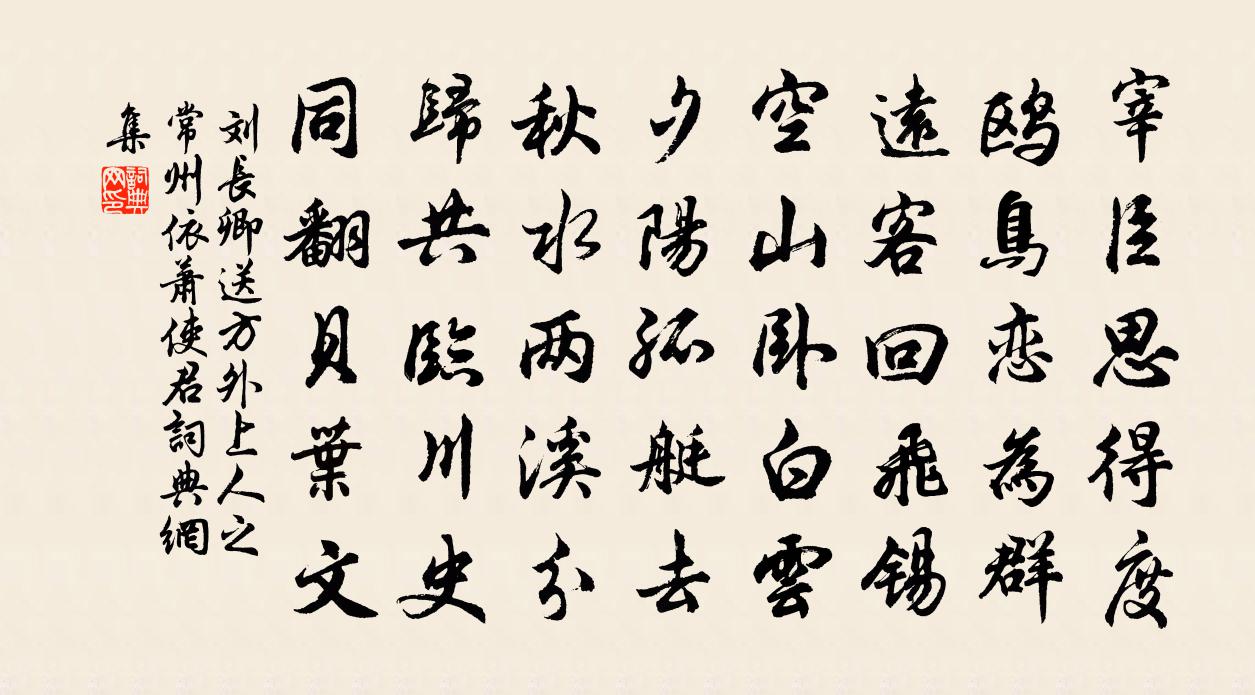 宰臣思得度
鸥鳥恋為群
遠客回飛锡
空山卧白雲
夕陽孤艇去
秋水两溪分
歸共臨川史
同翻貝葉文
刘長卿送方外上人之
常州依蕭使君詞典網
集
詞典
网印